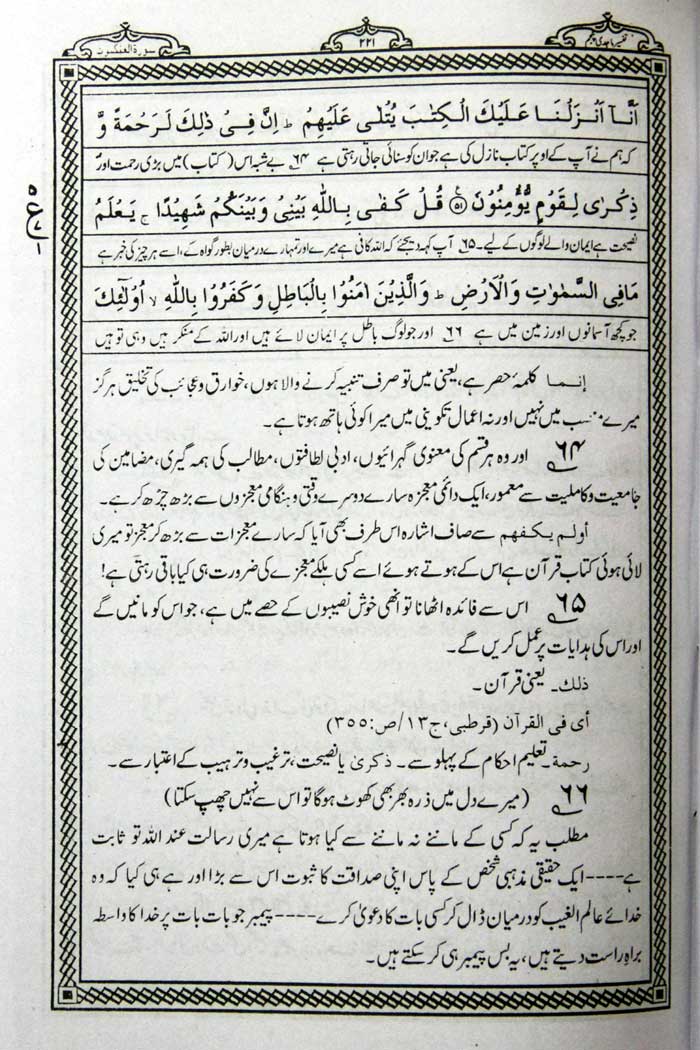 تفسیر ماجدی پنجم
۲۲۱
سورۃ العنکبوت
اَنَّاۤ اَنْزَلْنَا عَلَیْكَ الْكِتٰبَ یُتْلٰى عَلَیْهِمْ ؕ اِنَّ فِیْ ذٰلِكَ لَرَحْمَةً وَّ
کہ ہم نے آپ کے اوپر کتاب نازل کی ہے جو ان کو سنائی جاتی رہتی ہے ۶۴ بے شبہ اس (کتاب) میں بڑی رحمت اور
ذِكْرٰى لِقَوْمٍ یُّؤْمِنُوْنَ ۵۱ قُلْ كَفٰى بِاللهِ بَیْنِیْ وَبَیْنَكُمْ شَهِیْدًا ج یَعْلَمُ
نصیحت ہے ایمان والے لوگوں کے لیے۔ ۶۵ آپ کہہ دیجئے کہ اللہ کافی ہے میرے اور تمہارے درمیان بطور گواہ کے، اسے ہر چیز کی خبر ہے
مَا فِی السَّمٰوٰتِ وَالْاَرْضِ ؕ وَالَّذِیْنَ اٰمَنُوْا بِالْبَاطِلِ وَكَفَرُوْا بِاللهِ لا اُولٰٓئِكَ
جو کچھ آسمانوں اور زمین میں ہے ۶۶ اور جو لوگ باطل پر ایمان لائے ہیں اور اللہ کے منکر ہیں وہی تو ہیں
إنما کلمۂ حصر ہے، یعنی میں تو صرف تنبیہ کرنے والا ہوں، خوارق و عجائب کی تخلیق ہرگز
میرے منصب میں نہیں اور نہ اعمال تکوینی میں میرا کوئی ہاتھ ہوتا ہے۔
۶۴ اور وہ ہر قسم کی معنوی گہرائیوں، ادبی لطافتوں، مطالب کی ہمہ گیری، مضامین کی
جامعیت و کاملیت سے معمور، ایک دائمی معجزہ سارے دوسرے وقتی و ہنگامی معجزوں سے بڑھ چڑھ کر ہے۔
أولم یکفهم سے صاف اشارہ اس طرف بھی آیا کہ سارے معجزات سے بڑھ کر معجز تو میری
لائی ہوئی کتاب قرآن ہے اس کے ہوتے ہوئے اسے کسی ہلکے معجزے کی ضرورت ہی کیا باقی رہتی ہے!
۶۵ اس سے فائدہ اٹھانا تو انھی خوش نصیبوں کے حصے میں ہے، جو اس کو مانیں گے
اور اس کی ہدایات پر عمل کریں گے۔
ذلك۔ یعنی قرآن۔
أی فی القرآن (قرطبی، ج ۱۳/ص:۳۵۵)
رحمة۔ تعلیم احکام کے پہلو سے۔ ذکریٰ یا نصیحت، ترغیب و ترہیب کے اعتبار سے۔
۶۶ (میرے دل میں ذرہ بھر بھی کھوٹ ہوگا تو اس سے نہیں چھپ سکتا)
مطلب یہ کہ کسی کے ماننے نہ ماننے سے کیا ہوتا ہے میری رسالت عند اللہ تو ثابت
ہے----ایک حقیقی مذہبی شخص کے پاس اپنی صداقت کا ثبوت اس سے بڑا اور ہے ہی کیا کہ وہ
خدائے عالم الغیب کو درمیان ڈال کر کسی بات کا دعویٰ کرے----پیمبر جو بات بات پر خدا کا واسطہ
براہِ راست دیتے ہیں، یہ بس پیمبر ہی کر سکتے ہیں۔